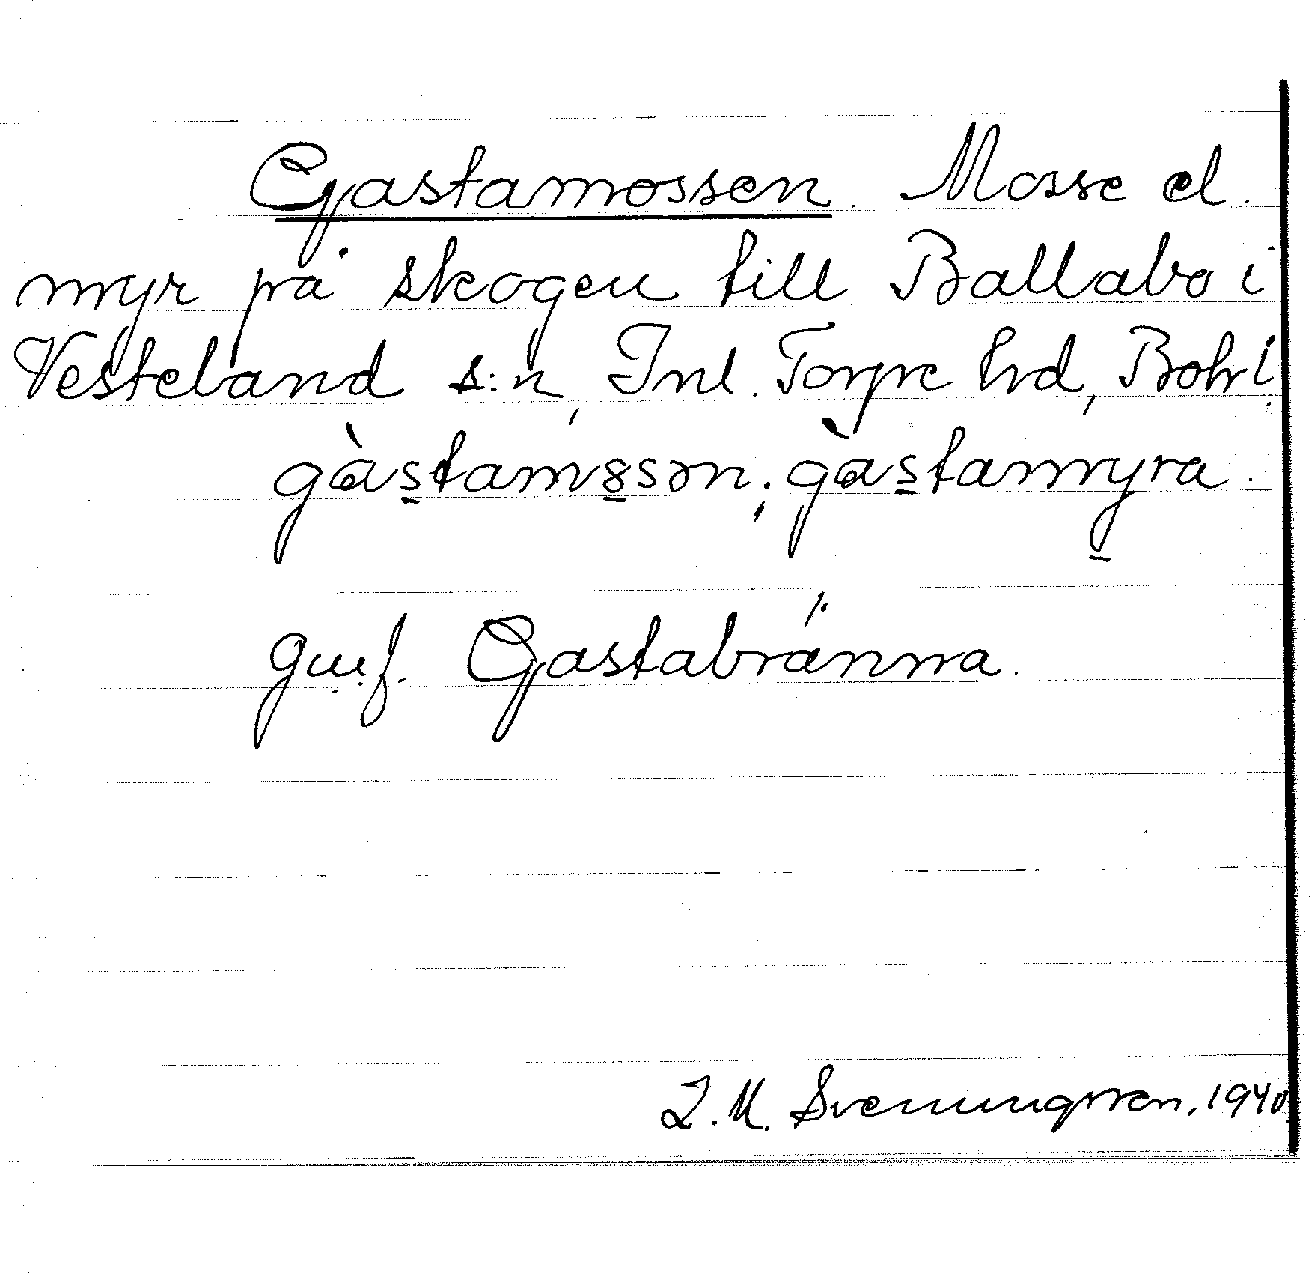 Gastamossen. Mosse el.
myr på skogen till Ballabo i
Vesteland s:n, Inl. Torpe hd, Bohl.
gàstamssən; gàstamyra.
Gastabränna.
1940